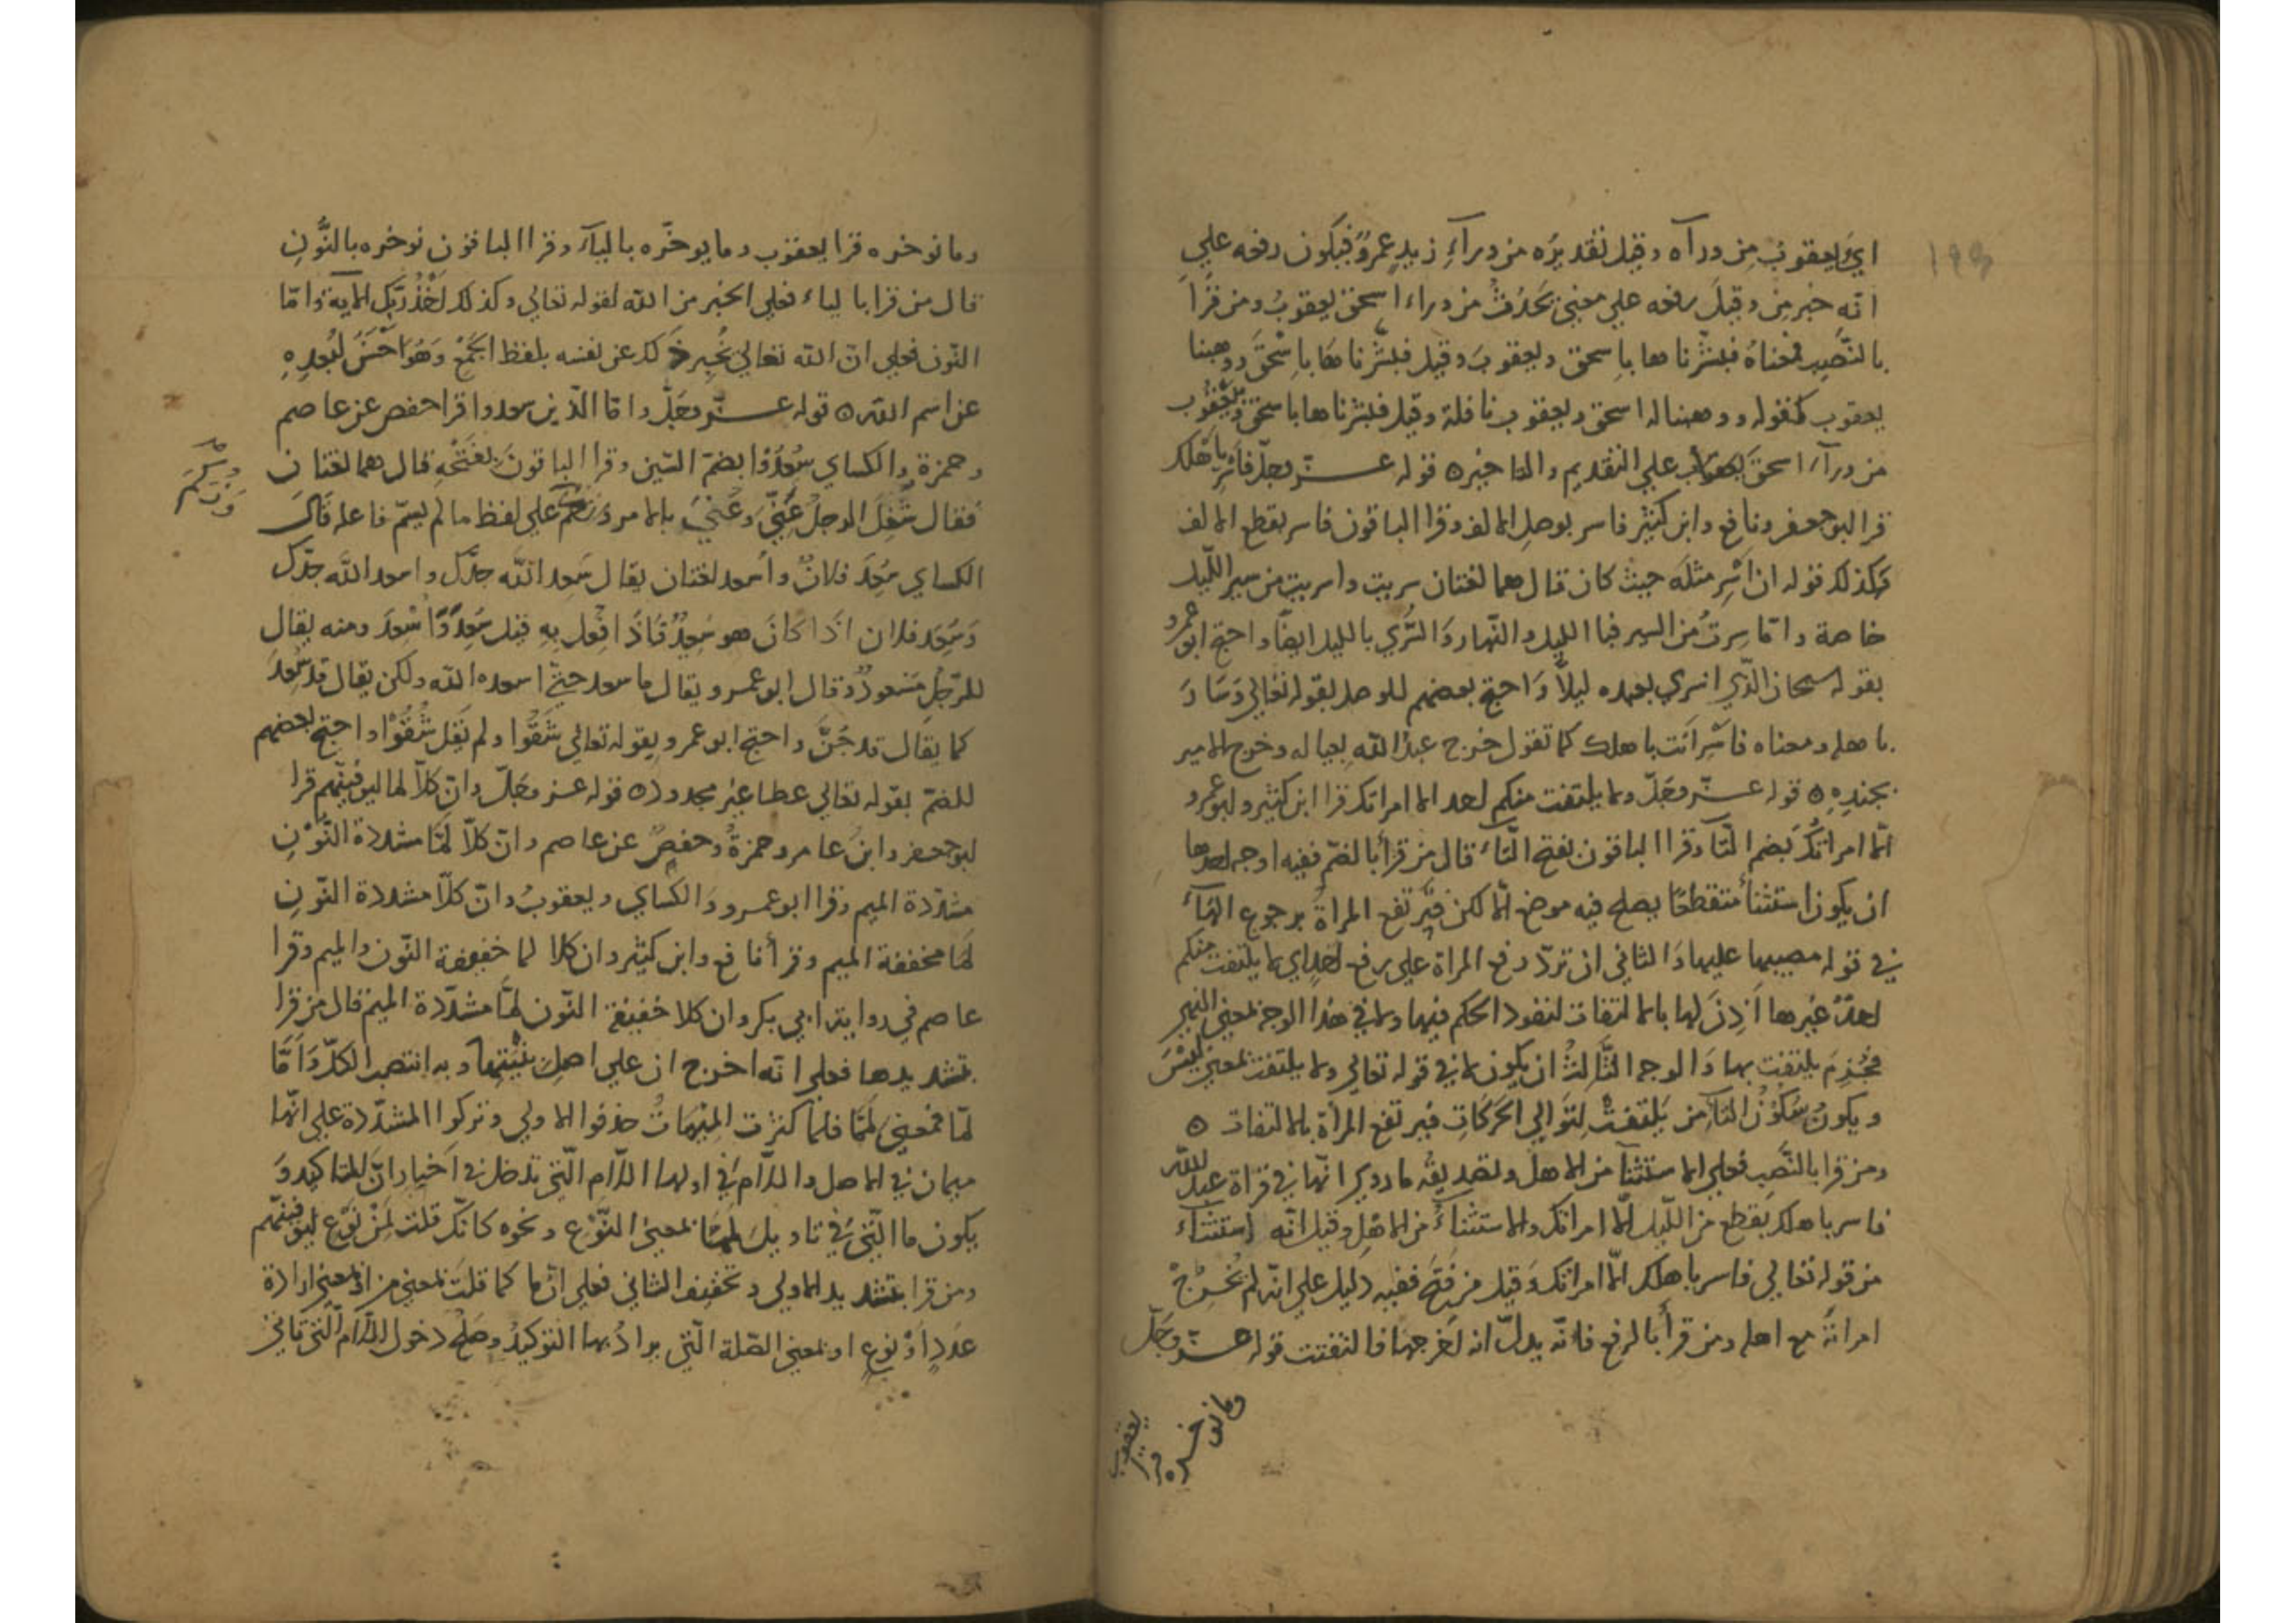 ١٩٣
اي يعقوب من ورآه وقيل تقديره من ورآء زيد عمرو فيكون رفعه علي
انه خبر من وقيل رفعه علي معني يحدث من وراء اسحق يعقوب ومن قرا
بالنصب فمعناه فبشرناها باسحق ويعقوب وقيل فبشرناها باسحق ووهبنا
يعقوب كقوله ووهبنا له اسحق ويعقوب نافلة وقيل فبشرناها باسحق وبيعقوب
من ورآء اسحق يعقوب علي التقديم والتاخير ه قوله عــز وجل فاسر باهلك
قرا ابو جعفر ونافع وابن كثير فاسر بوصل الالف وقرا الباقون فاسر بقطع الالف
وكذلك قوله ان اسر مثله حيث كان قال هما لغتان سريت واسريت من سير الليل
خاصة واما سرت من السير فبا الليل والنهار والسري بالليل ايضا واحتج ابو عمرو
بقوله سبحان الذي اسري بعبده ليلا واحتج بعضهم للوصل بقوله تعالي وسار
باهله ومعناه فاسر انت باهلك كما تقول خرج عبد الله بعياله وخرج الامير
بجنده ه قوله عــز وجل ولا يلتفت منكم احد الا امراتك قرا ابن كثير وابو عمرو
الا امراتك بضم التا وقرا الباقون بفتح التاء قال من قرا بالضم ففيه اوجه احدها
ان يكون استثنا منقطعا يصلح فيه موضع الا لكن فيرتفع المراة برجوع الهاء
في قوله مصيبها عليها والثاني ان تردد رفع المراة علي رفع احد اي لا يلتفت منكم
احد غيرها اذن لها بالالتفات لنفود الحكم فيها ولا في هذا الوجه لمعني النهي
فجزم يلتفت بها والوجه الثالث ان يكون لا في قوله تعالي ولا يلتفت لمعني ليس
ويكون سكون التاء من يلتفت لتوالي الحركات فيرتفع المراة بالالتفات ه
ومن قرا بالنصب فعلي الاستثنا من الاهل وتصديقه ما روي انها في قراة عبد الله
فاسر باهلك بقطع من الليل الا امراتك والاستثناء من الاهل وقيل انه استثناء
من قوله تعالي فاسر باهلك الا امراتك وقيل من فتح ففيه دليل علي انه لم تخرج
امراته مع اهله ومن قرا بالرفع فانه يدل انه اخرجها فالتفتت قوله عــز وجل
وما نوخره قرا يعقوب
وما نوخره قرا يعقوب وما يوخره باليآء وقرا الباقون نوخره بالنون
قال من قرا بالياء فعلي الخبر من الله لقوله تعالي وكذلك اخذ ربك الاية واما
النون فعلي ان الله تعالي يخبر ذلك عن نفسه بلفظ الجمع وهو احسن لبعده
عن اسم الله ه قوله عــز وجل واما الذين سعدوا قرا حفص عن عاصم
وحمزة والكساي سعدوا بضم السين وقرا الباقون بفتحه قال هما لغتان
فقال شغل الرجل عني وعني بالامر علي لفظ ما لم يسم فاعله قال
الكساي سعد فلان واسعد لغتان يقال سعد الله جدك واسعد الله جدك
وسعد فلان اذا كان هو سعيد فاذا افعل به قيل سعد واسعد ومنه يقال
للرجل مسعود وقال ابو عمرو يقال ما سعد حتي اسعده الله ولكن يقال قد سعد
كما يقال قد جن واحتج ابو عمرو بقوله تعالي شقوا ولم يقل شقوا واحتج بعضهم
للضم بقوله تعالي عطا غير مجدود ه قوله عــز وجل وان كلا لما ليوفينهم قرا
ابو جعفر وابن عامر وحمزة وحفص عن عاصم وان كلا لما مشددة النون
مشددة الميم وقرا ابو عمرو والكساي ويعقوب وان كلا مشددة النون
لما مخففة الميم وقرا نافع وابن كثير وان كلا لما خفيفة النون والميم وقرا
عاصم في رواية ابي بكر وان كلا خفيفة النون لما مشددة الميم قال من قرا
بتشديدها فعلي انه اخرج ان علي اصل وبه انتصب الكل واما
لما فمعني لمما فلما كثرت الميمات حذفوا الاولي وتركوا المشددة علي انها
ميمان في الاصل واللام في اولها اللام التي تدخل في اخبار ان للتاكيد و
يكون ما التي في تاويل لمعني النوع ونحوه كانك قلت لمن نوع ليوفينهم
ومن قرا بتشديد الاولي وتخفيف الثاني فعلي ان ما كما قلت لمعني من او لمعني ارادة
عدد او نوع او لمعني الصلة التي يراد بها التوكيد وصلح دخول اللام التي تاتي